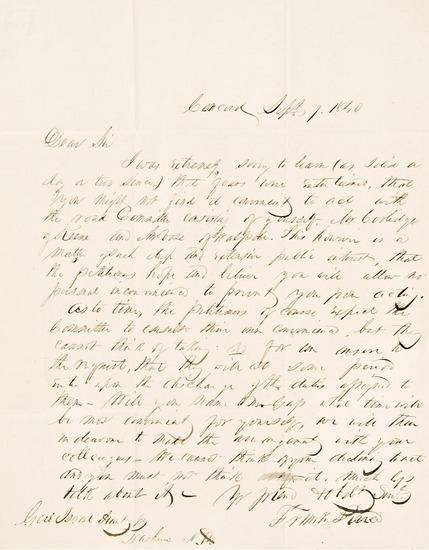 Concord Sept. 7. 1840
Dear Sir
I was extremely sorry to learn (as I did a
day or two since) that fears were entertained, that
you might not find it convenient to act with
the road Committee consisting of yourself, Mr Coolidge
of Keene and Mr Vose of Walpole. This however is a
matter of such deep and extensive public interest, that
the petitioners hope and believe you will allow no
personal inconvenience to prevent you from acting.
As to time, the petitioners of course expect the
Committee to consult their own convenience. but they
cannot think of taking no for an answer to
the request, that they will at some period
enter upon the discharge of the duties assigned to
them – Will you name to me what time will
be most convenient for yourself, & we will then
endeavor to make the arrangement with your
colleagues – We cannot think of your declining
and you must not think of it, much less
talk about it – Yr friend & obdt Servt
Frank Pierce
Genl Israel Hunt Jr
Nashua N.H.